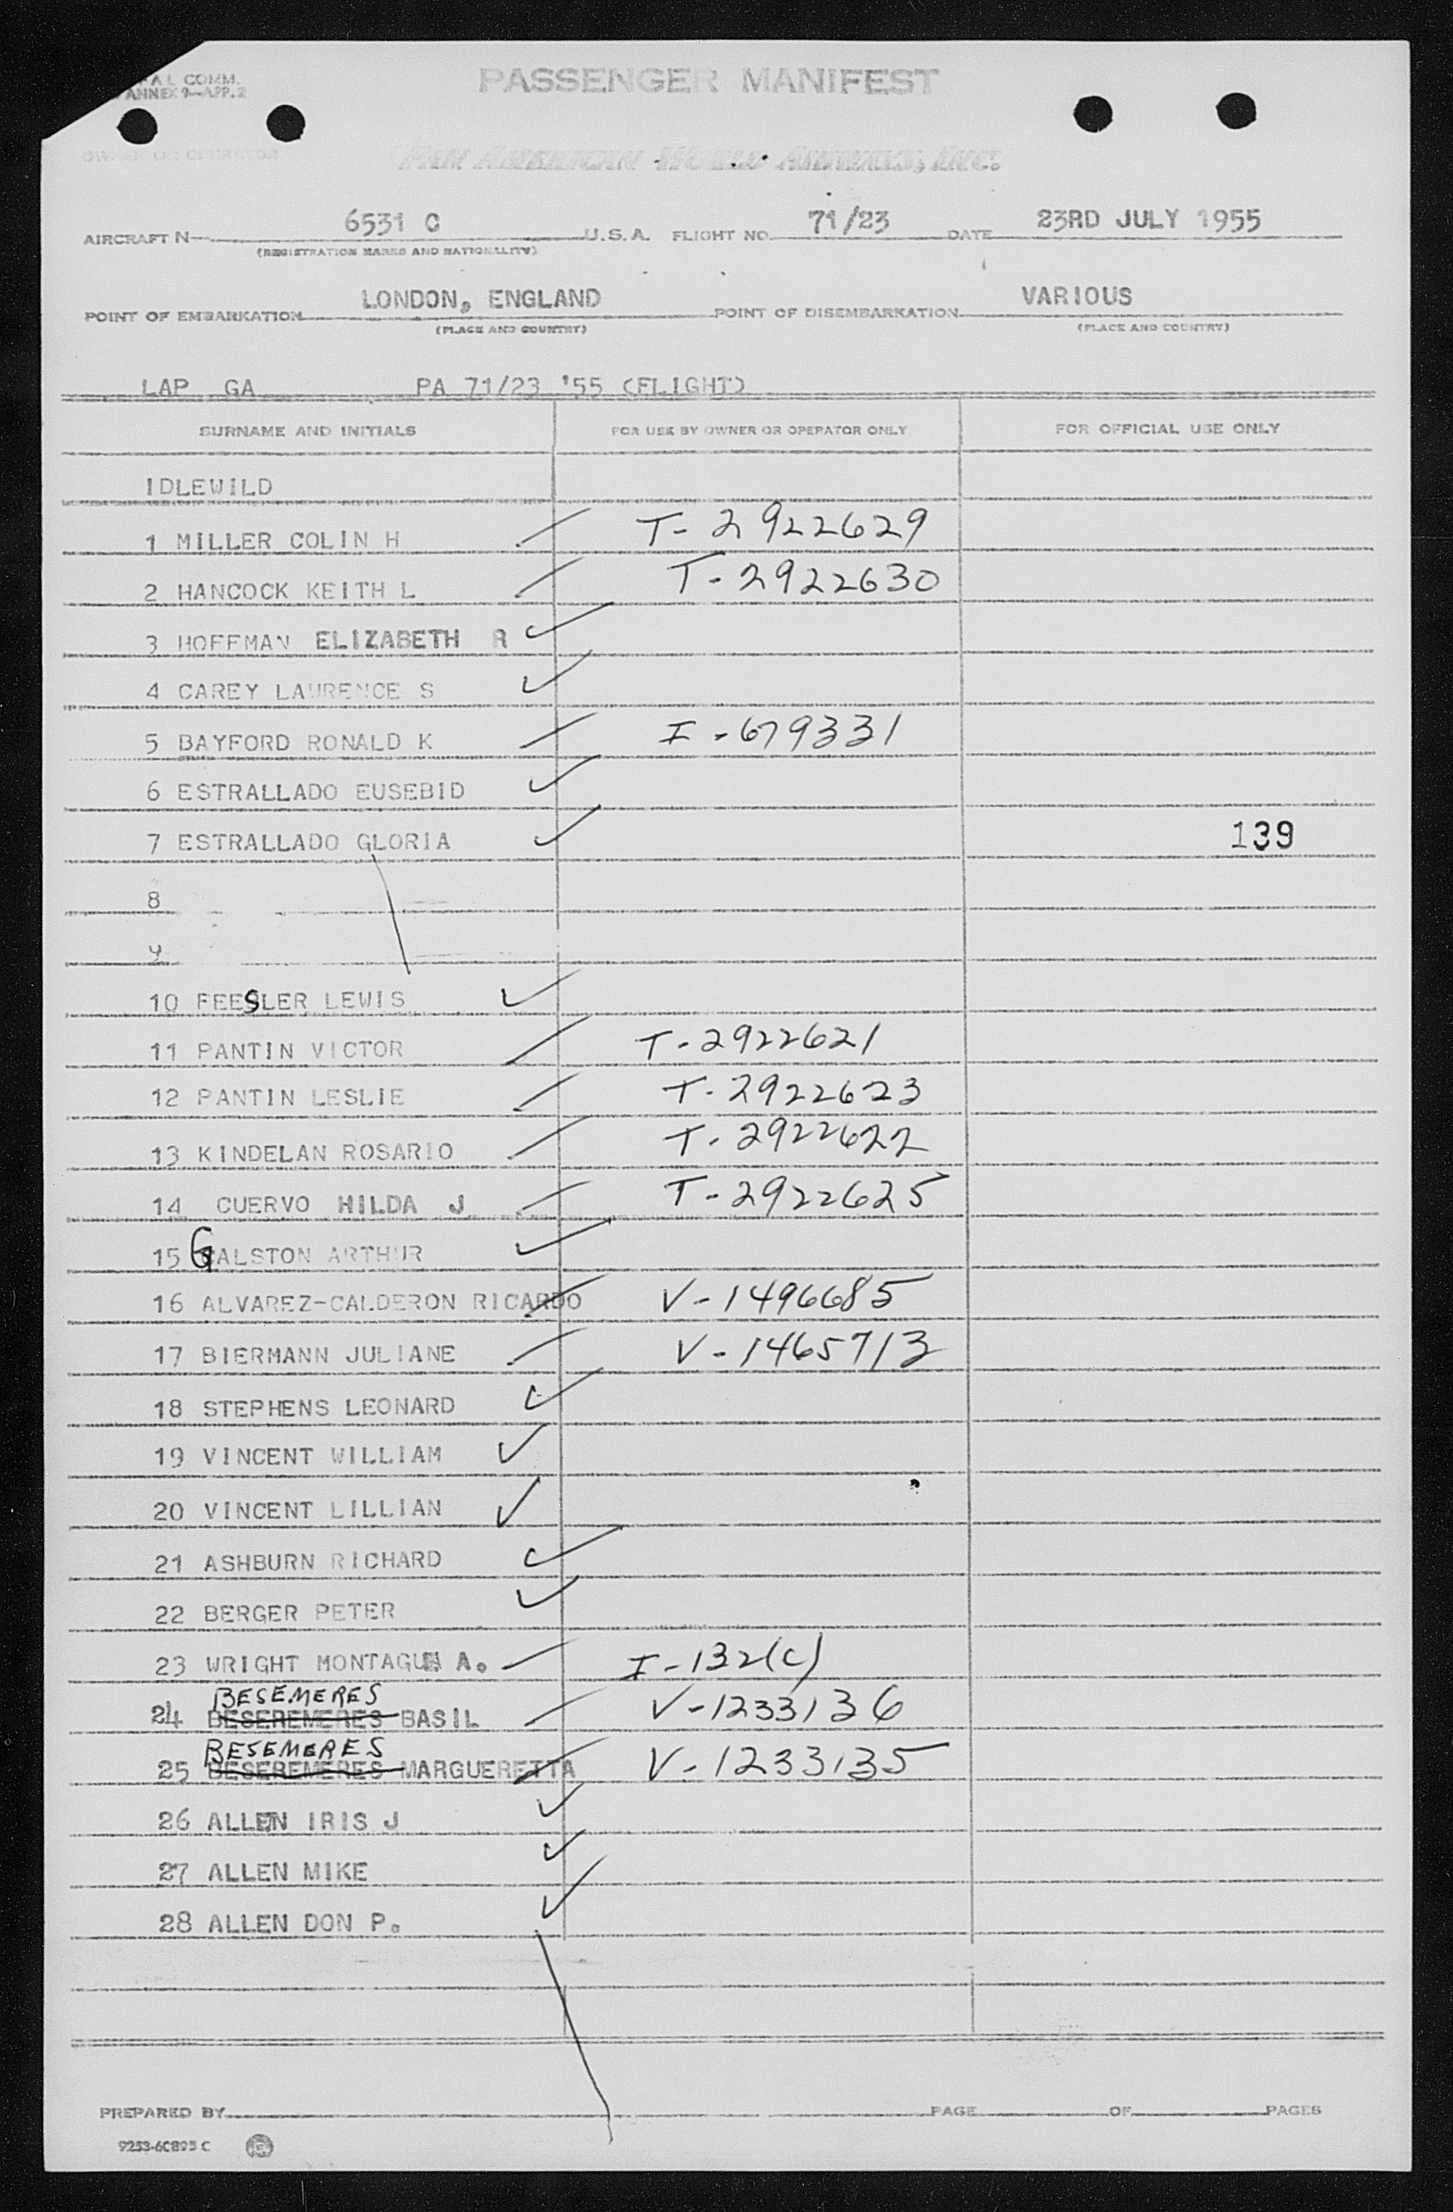 AL COMM.
ANNEX 9—APP.2
PASSENGER MANIFEST
OWNER OR OPERATOR
PAN AMERICAN WORLD AIRWAYS, INC.
AIRCRAFT N— 6531 C U.S.A. FLIGHT NO. 71/23 DATE 23RD JULY 1955
(REGISTRATION MARKS AND NATIONALITY)
POINT OF EMBARKATION LONDON, ENGLAND POINT OF DISEMBARKATION VARIOUS
(PLACE AND COUNTRY) (PLACE AND COUNTRY)
LAP GA PA 71/23 '55 (FLIGHT)
SURNAME AND INITIALS FOR USE BY OWNER OR OPERATOR ONLY FOR OFFICIAL USE ONLY
IDLEWILD
1 MILLER COLIN H T-2922629
2 HANCOCK KEITH L T-2922630
3 HOFFMAN ELIZABETH R
4 CAREY LAURENCE S
5 BAYFORD RONALD K I-679331
6 ESTRALLADO EUSEBIO
7 ESTRALLADO GLORIA 139
8
9
10 FEESLER LEWIS
11 PANTIN VICTOR T-2922621
12 PANTIN LESLIE T-2922623
13 KINDELAN ROSARIO T-2922622
14 CUERVO HILDA J T-2922625
15 GALSTON ARTHUR
16 ALVAREZ-CALDERON RICARDO V-1496685
17 BIERMANN JULIANE V-1465713
18 STEPHENS LEONARD
19 VINCENT WILLIAM
20 VINCENT LILLIAN
21 ASHBURN RICHARD
22 BERGER PETER
23 WRIGHT MONTAGUE A. I-132(C)
BESEMERES
24 BESEREMERES BASIL V-1233136
BESEMERES
25 BESEREMERES MARGUERETTA V-1233135
26 ALLEN IRIS J
27 ALLEN MIKE
28 ALLEN DON P.
PREPARED BY PAGE OF PAGES
9253-6C895 C